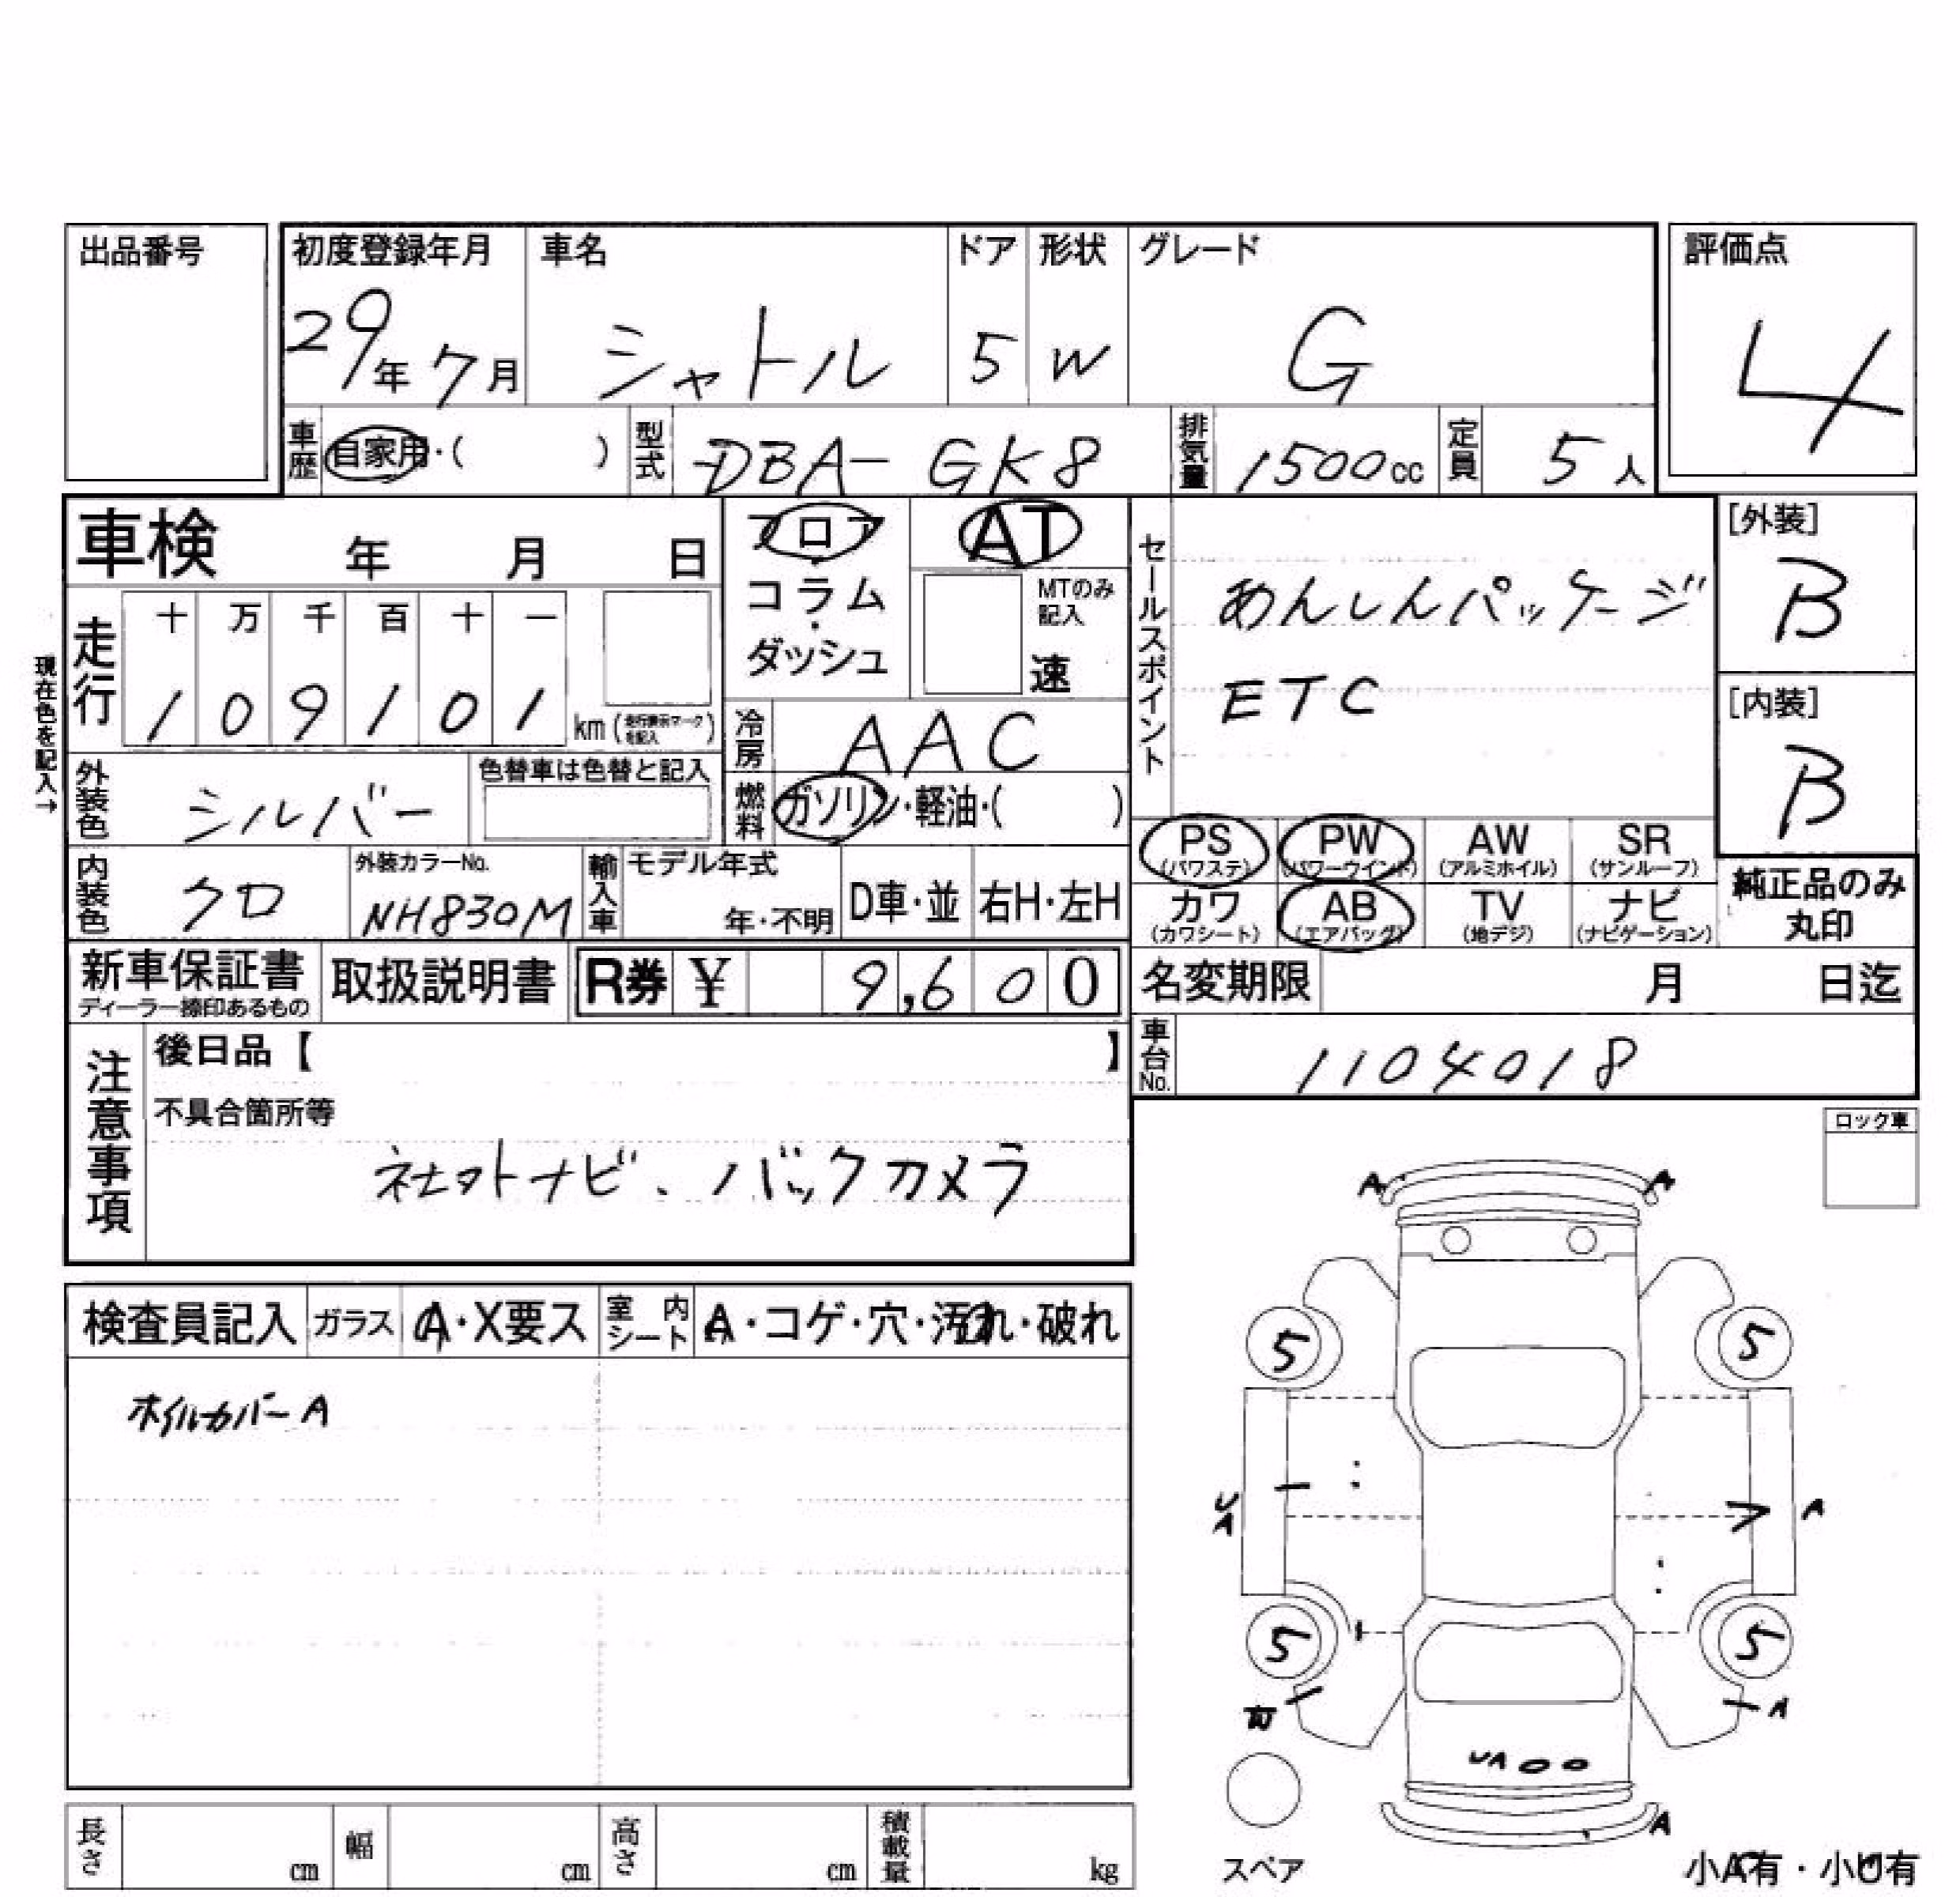 出品番号
初度登録年月 車名 ドア 形状 グレード 評価点
29年7月 シャトル 5 W G 4
車歴 自家用・( ) 型式 DBA-GK8 排気量 1500cc 定員 5人
車検 年 月 日
フロア・コラム・ダッシュ
AT
MTのみ記入
速
セールスポイント
あんしんパッケージ
ETC
[外装]
B
[内装]
B
現在色を記入→
走行 十 万 千 百 十 一
1 0 9 1 0 1 km (走行表示マークを記入)
冷房 AAC
燃料 ガソリン・軽油・( )
外装色 シルバー 色替車は色替と記入
内装色 クロ 外装カラーNo. NH830M 輸入車 モデル年式 年・不明 D車・並 右H・左H
PS (パワステ) PW (パワーウインド) AW (アルミホイル) SR (サンルーフ)
カワ (カワシート) AB (エアバッグ) TV (地デジ) ナビ (ナビゲーション)
純正品のみ丸印
新車保証書 ディーラー捺印あるもの 取扱説明書 R券 ¥ 9,600
名変期限 月 日迄
車台No. 1104018
注意事項
後日品【 】
不具合箇所等
社外ナビ、バックカメラ
ロック車
検査員記入 ガラス A・X要ス 室内シート A・コゲ・穴・汚れ・破れ
ホイルカバーA
A A
5 5
UA A
5 5
A
UA
A
スペア
小A有・小U有
長さ cm 幅 cm 高さ cm 積載量 kg